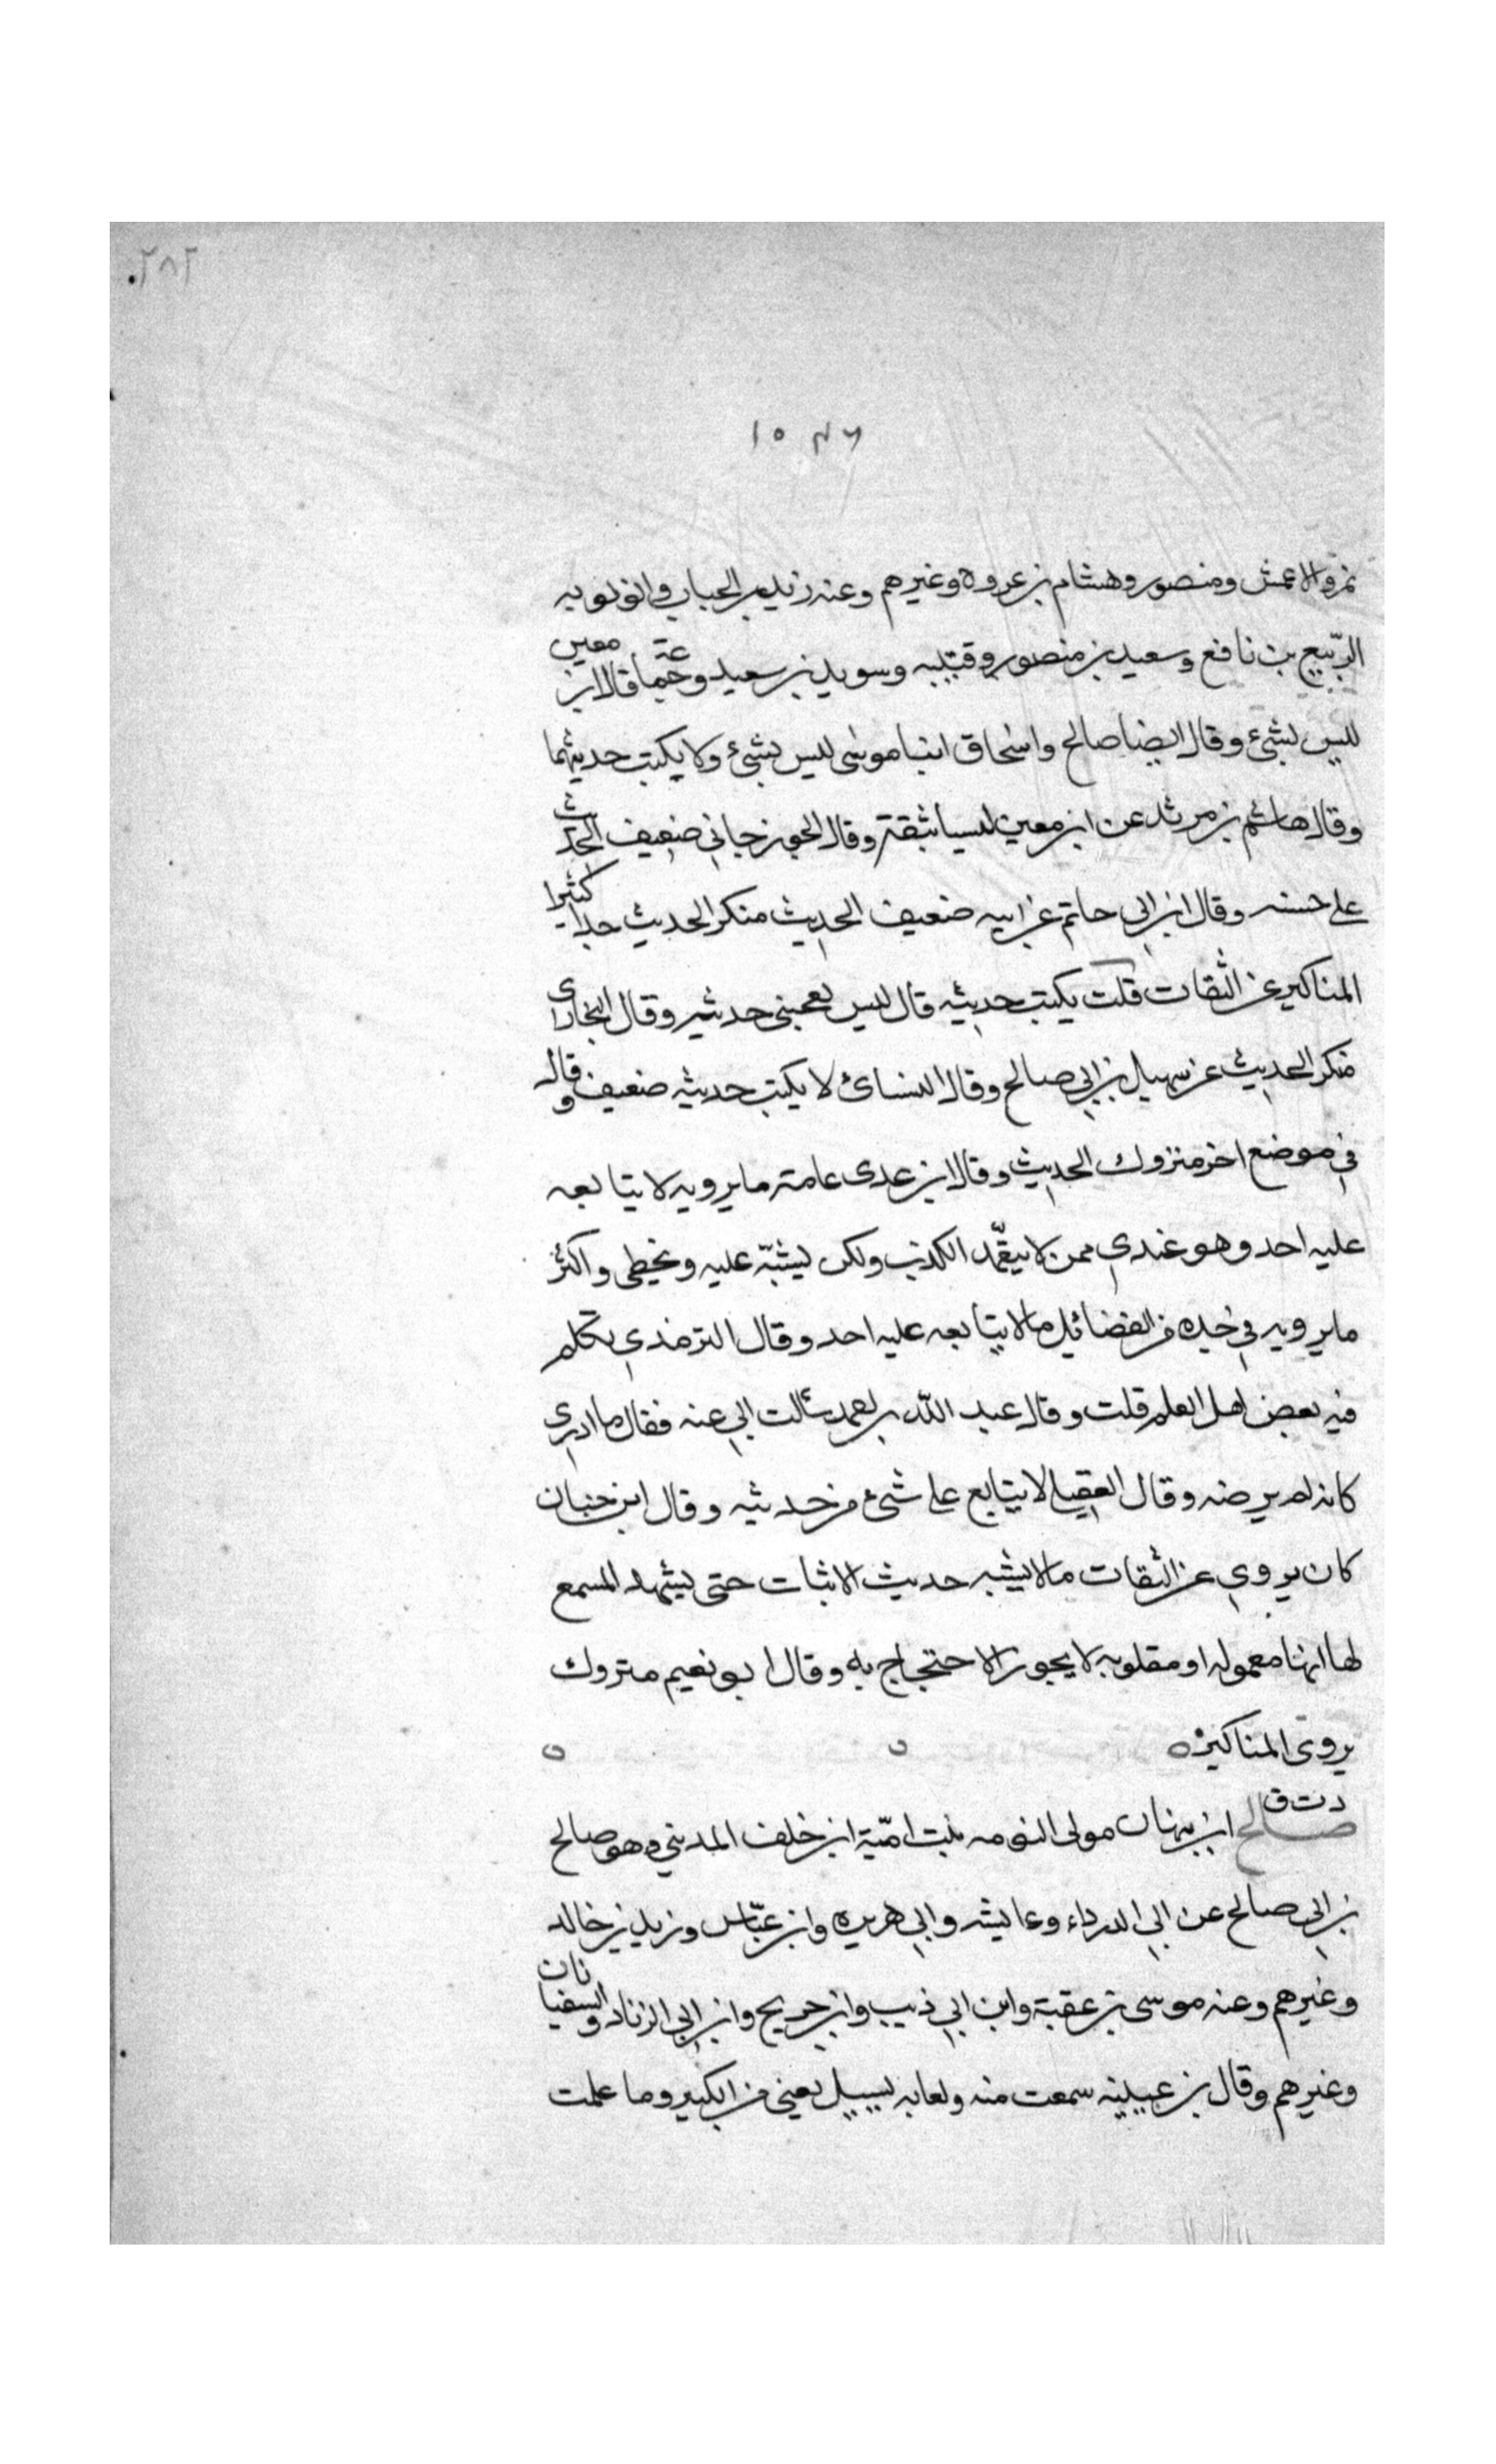 ٢٨٢
١٥٤٦
نمر والاعمش ومنصور وهشام بن عروة وغيرهم وعنه زيد بن الحباب وابو توبه
الربّيع بن نافع وسعيد بن منصور وقتيبه وسويد بن سعيد وجماعة قال ابن معين
ليس بشئ وقال ايضا صالح واسحاق ابنا موسى ليس بشئ ولا يكتب حديثهما
وقال هاشم بن مرثد عن ابن معين ليسا بثقة وقال الجوزجاني ضعيف الحديث
على حسنه وقال ابن ابي حاتم عن ابيه ضعيف الحديث منكر الحديث جدا كثير
المناكير عن الثقات قلت يكتب حديثه قال ليس يعجبني حديثه وقال البخاري
منكر الحديث عن سهيل بن ابي صالح وقال النسائ لا يكتب حديثه ضعيف وقال
في موضع اخر متروك الحديث وقال ابن عدى عامة ما يرويه لا يتابعه
عليه احد وهو عندي ممن لا يتعمّد الكذب ولكن يشبّه عليه ويخطى واكثر
ما يرويه في جده من الفضائل مالا يتابعه عليه احد وقال الترمذي تكلم
فيه بعض اهل العلم قلت وقال عبد الله بن احمد سألت ابي عنه فقال ما ادرى
كانه لم يرضه وقال العقيلى لا يتابع على شئ من حديثه وقال ابن حبان
كان يروي عن الثقات مالا يشبه حديث الاثبات حتى يشهد المسمع
لها انها معموله او مقلوبه لا يجوز الاحتجاج به وقال ابو نعيم متروك
يروى المناكير ٥ ٥ ٥
د ت ق
صالح ابن نبهان مولى التومه بنت امّية ابن خلف المدني وهو صالح
بن ابي صالح عن ابي الدرداء وعايشه وابي هريره وابن عبّاس وزيد بن خالد
وغيرهم وعنه موسى بن عقبة وابن ابي ذيب وابن جريج وابن ابي الزناد والسفيانان
وغيرهم وقال بن عيينه سمعت منه ولعابه يسيل يعني من الكبر وما علمت